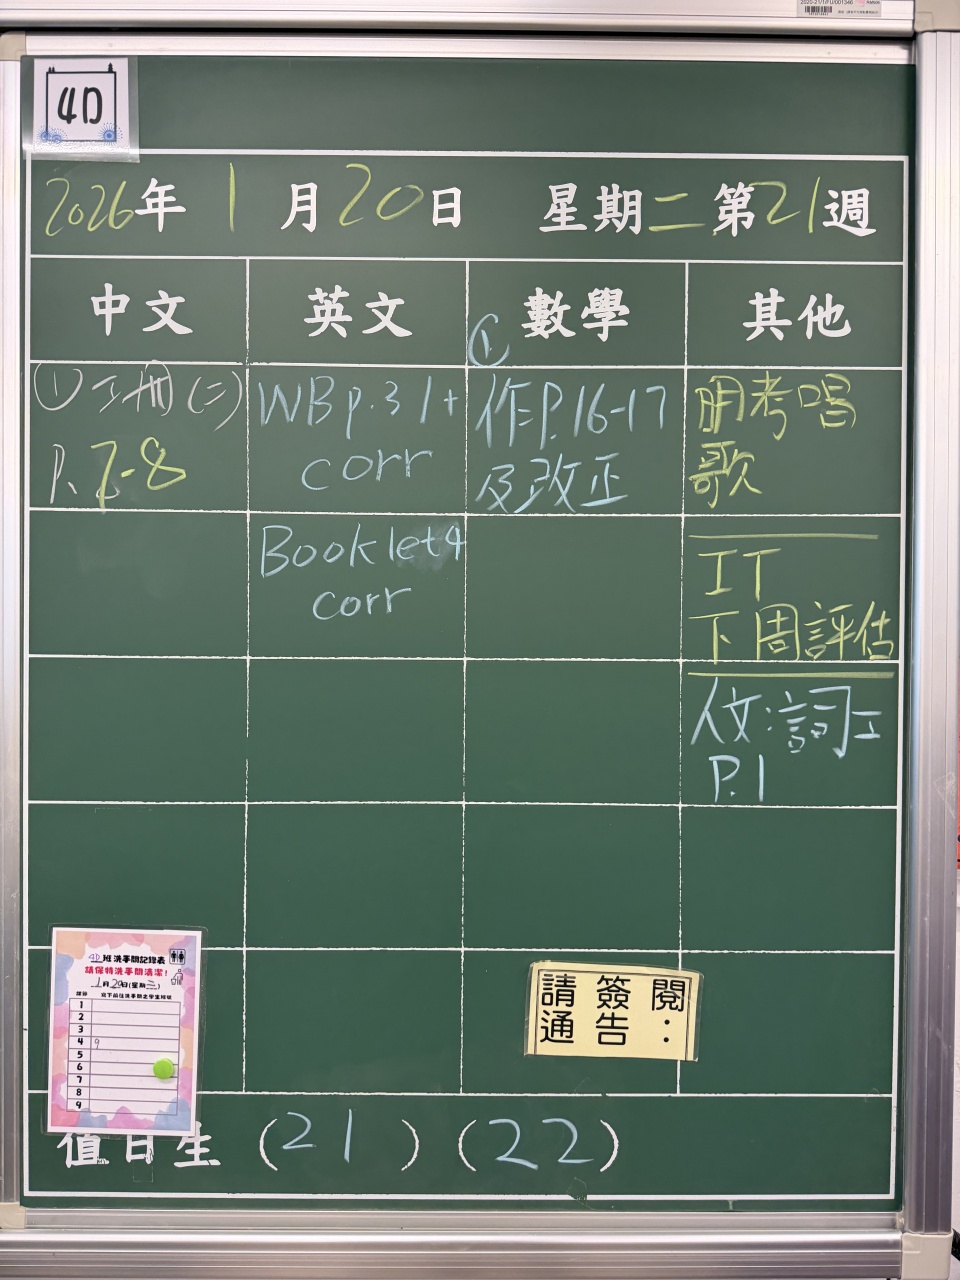 2020-21/1/FU/001346
4D
2026年 1 月 20 日 星期二 第 21 週
中文
英文
數學
其他
① 工冊(二)
P. 7-8
WB p.31 +
corr
Booklet 4
corr
①
作P.16-17
及改正
明考唱
歌
IT
下周評估
人文:詞工
P.1
4D班洗手間記錄表
請保持洗手間清潔!
1月20日(星期二)
1
2
3
4 9
5
6
7
8
9
請簽閱
通告:
值日生 (21) (22)